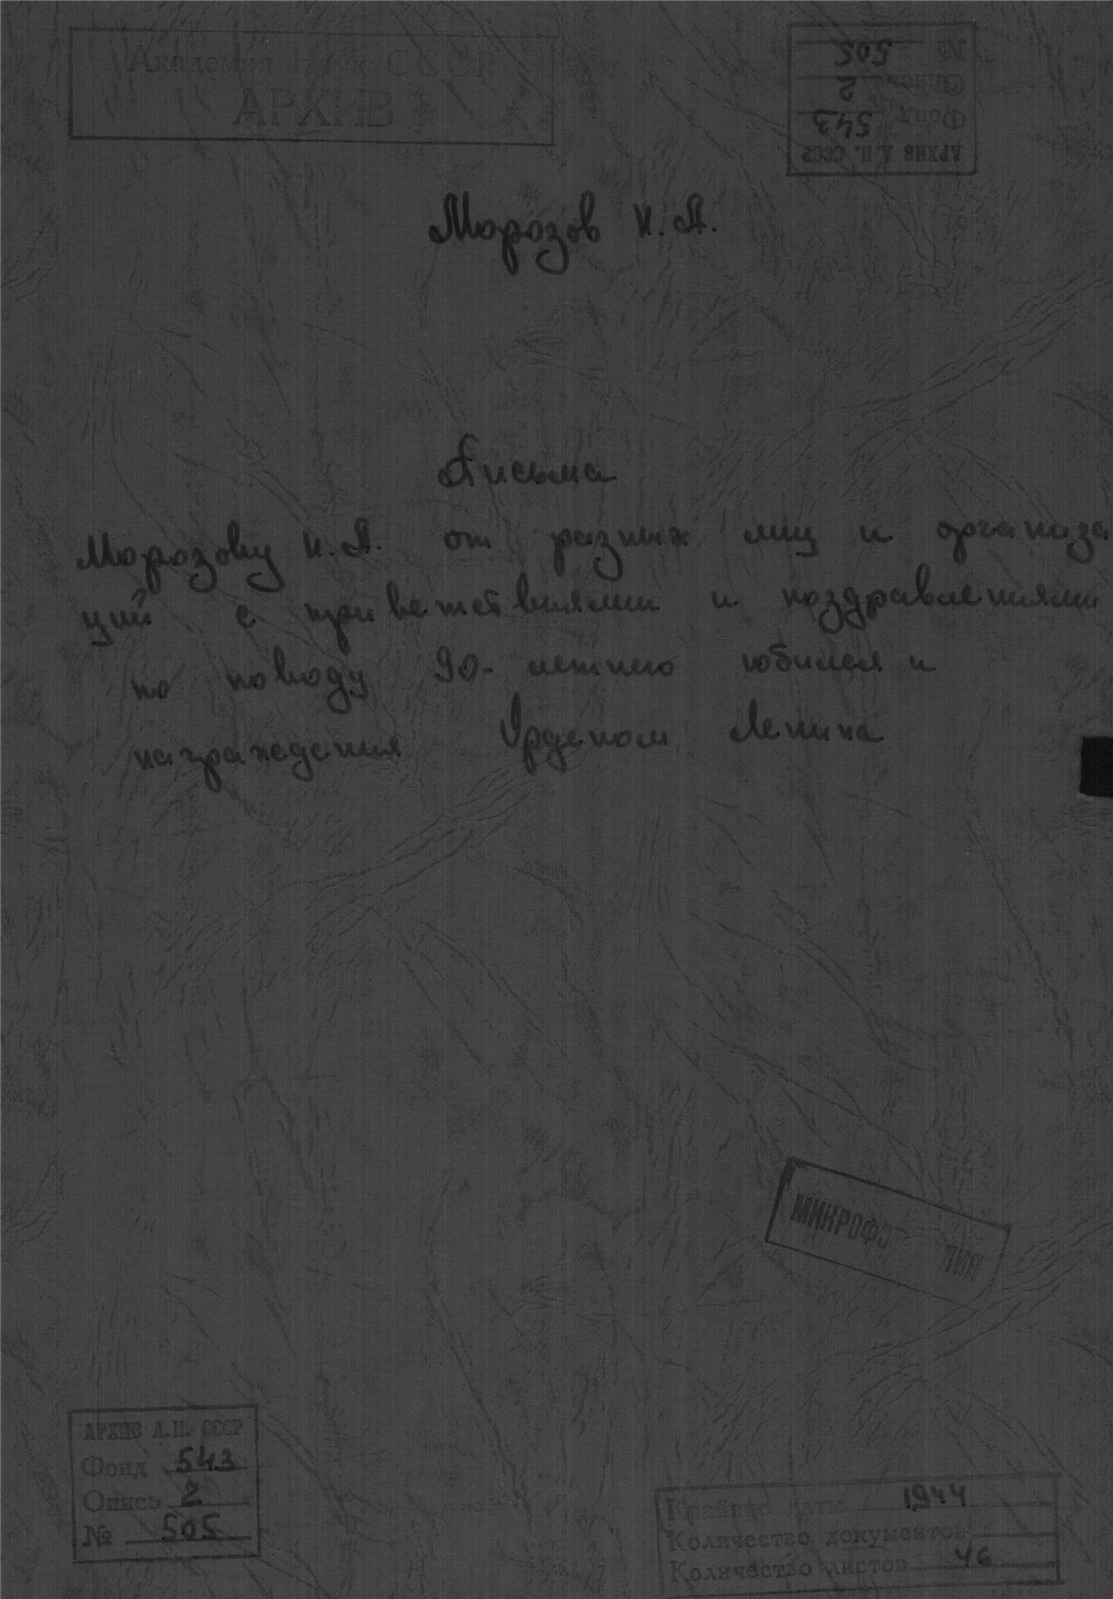 Академия Наук СССР
АРХИВ
АРХИВ А.Н. СССР
Фонд 543
Опись 2
№ 505
Морозов Н.А.
Письма
Морозову Н.А. от разных лиц и организа
ций с приветствиями и поздравлениями
по поводу 90-летнего юбилея и
награждения Орденом Ленина
МИКРОФО
АРХИВ А.Н. СССР
Фонд 543
Опись 2
№ 505
Крайние даты 1944
Количество документов
Количество листов 46